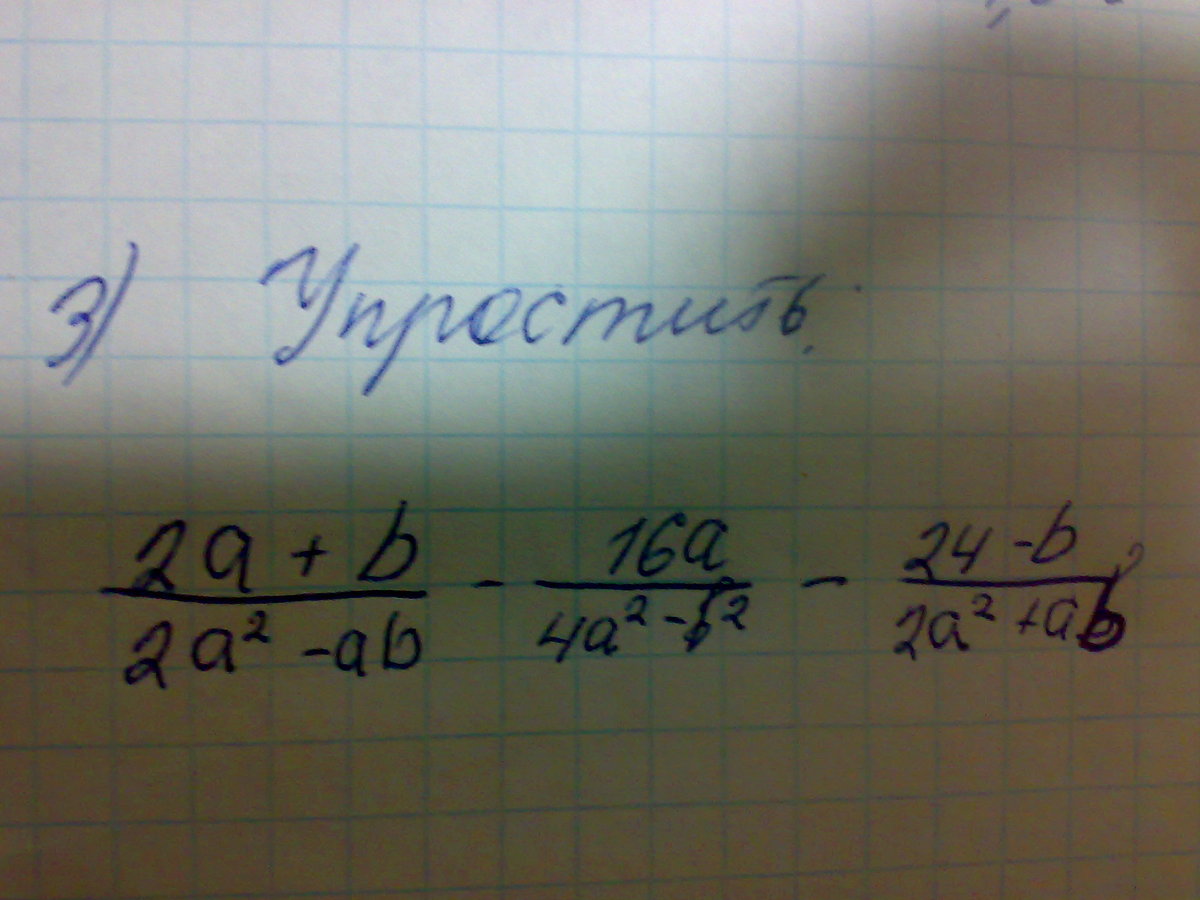 3) Упростить.
2a + b / 2a² - ab - 16a / 4a² - b² - 24 - b / 2a² + ab